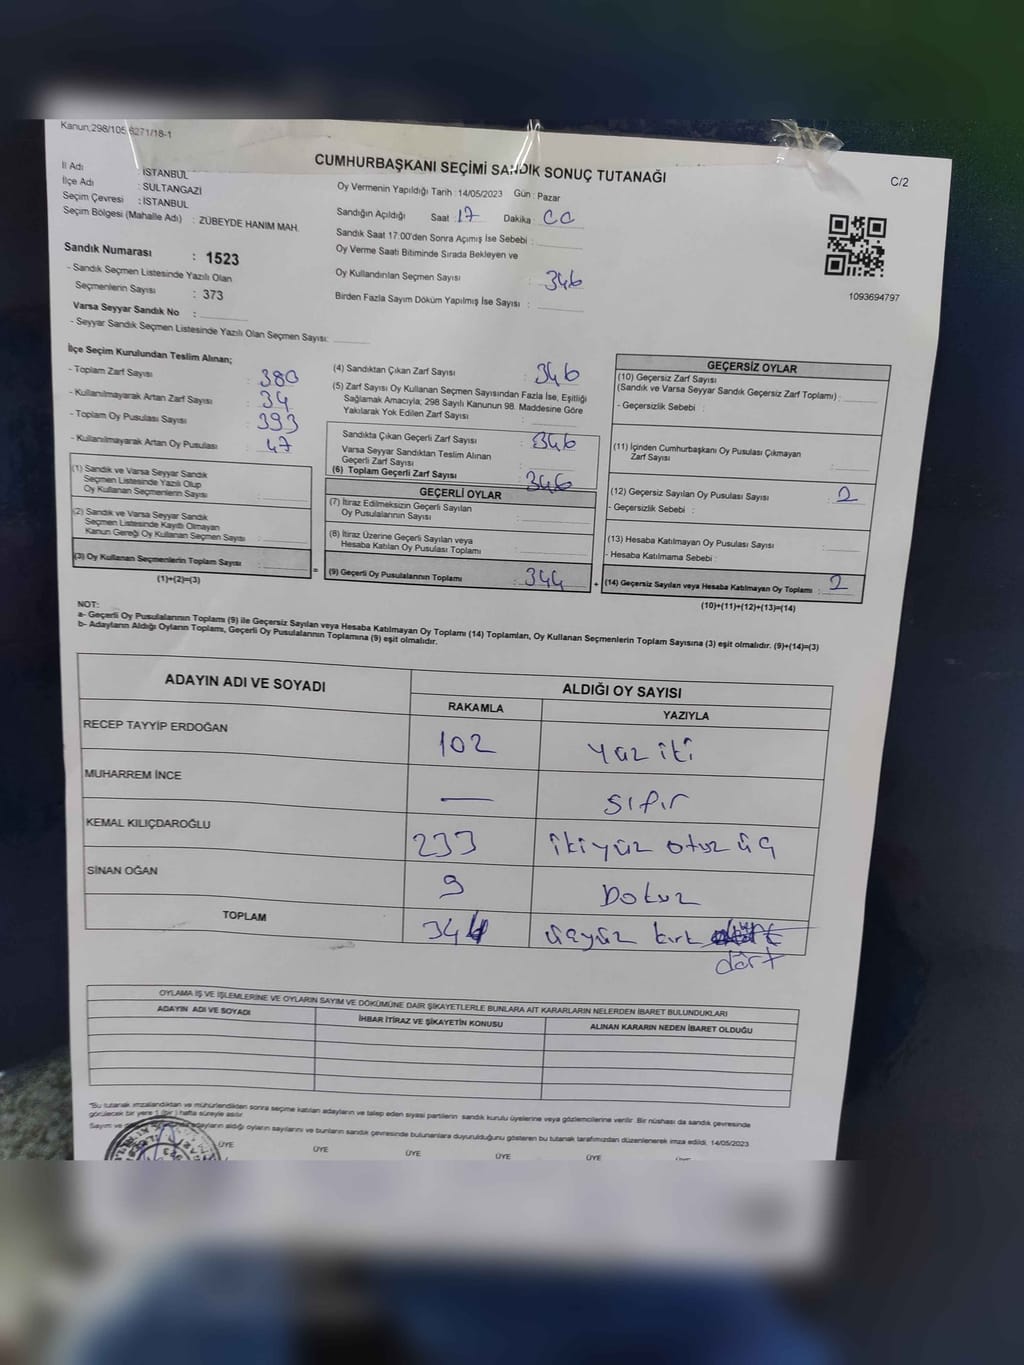 Kanun;298/105 6271/18-1
CUMHURBAŞKANI SEÇİMİ SANDIK SONUÇ TUTANAĞI
C/2
İl Adı : İSTANBUL
İlçe Adı : SULTANGAZİ
Seçim Çevresi : İSTANBUL
Seçim Bölgesi (Mahalle Adı) : ZÜBEYDE HANIM MAH.
Sandık Numarası : 1523
- Sandık Seçmen Listesinde Yazılı Olan
Seçmenlerin Sayısı : 373
Varsa Seyyar Sandık No :
- Seyyar Sandık Seçmen Listesinde Yazılı Olan Seçmen Sayısı:
Oy Vermenin Yapıldığı Tarih : 14/05/2023 Gün : Pazar
Sandığın Açıldığı Saat : 17 Dakika :
Sandık Saat 17:00'den Sonra Açımış İse Sebebi :
Oy Verme Saati Bitiminde Sırada Bekleyen ve
Oy Kullandırılan Seçmen Sayısı : 346
Birden Fazla Sayım Döküm Yapılmış İse Sayısı :
1093694797
İlçe Seçim Kurulundan Teslim Alınan;
- Toplam Zarf Sayısı : 380
- Kullanılmayarak Artan Zarf Sayısı : 34
- Toplam Oy Pusulası Sayısı : 393
- Kullanılmayarak Artan Oy Pusulası : 47
(1) Sandık ve Varsa Seyyar Sandık
Seçmen Listesinde Yazılı Olup
Oy Kullanan Seçmenlerin Sayısı :
(2) Sandık ve Varsa Seyyar Sandık
Seçmen Listesinde Kayıtlı Olmayan
Kanun Gereği Oy Kullanan Seçmen Sayısı :
(3) Oy Kullanan Seçmenlerin Toplam Sayısı :
(1)+(2)=(3)
(4) Sandıktan Çıkan Zarf Sayısı : 346
(5) Zarf Sayısı Oy Kullanan Seçmen Sayısından Fazla İse, Eşitliği
Sağlamak Amacıyla; 298 Sayılı Kanunun 98. Maddesine Göre
Yakılarak Yok Edilen Zarf Sayısı :
Sandıkta Çıkan Geçerli Zarf Sayısı : 346
Varsa Seyyar Sandıktan Teslim Alınan
Geçerli Zarf Sayısı :
(6) Toplam Geçerli Zarf Sayısı : 346
GEÇERLİ OYLAR
(7) İtiraz Edilmeksizin Geçerli Sayılan
Oy Pusulalarının Sayısı :
(8) İtiraz Üzerine Geçerli Sayılan veya
Hesaba Katılan Oy Pusulası Toplamı :
= (9) Geçerli Oy Pusulalarının Toplamı : 344 +
GEÇERSİZ OYLAR
(10) Geçersiz Zarf Sayısı
(Sandık ve Varsa Seyyar Sandık Geçersiz Zarf Toplamı) :
- Geçersizlik Sebebi :
(11) İçinden Cumhurbaşkanı Oy Pusulası Çıkmayan
Zarf Sayısı :
(12) Geçersiz Sayılan Oy Pusulası Sayısı : 2
- Geçersizlik Sebebi :
(13) Hesaba Katılmayan Oy Pusulası Sayısı :
- Hesaba Katılmama Sebebi :
(14) Geçersiz Sayılan veya Hesaba Katılmayan Oy Toplamı : 2
(10)+(11)+(12)+(13)=(14)
NOT:
a- Geçerli Oy Pusulalarının Toplamı (9) ile Geçersiz Sayılan veya Hesaba Katılmayan Oy Toplamı (14) Toplamları, Oy Kullanan Seçmenlerin Toplam Sayısına (3) eşit olmalıdır. (9)+(14)=(3)
b- Adayların Aldığı Oyların Toplamı, Geçerli Oy Pusulalarının Toplamına (9) eşit olmalıdır.
ADAYIN ADI VE SOYADI ALDIĞI OY SAYISI
RAKAMLA YAZIYLA
RECEP TAYYİP ERDOĞAN 102 yüz iki
MUHARREM İNCE — sıfır
KEMAL KILIÇDAROĞLU 233 ikiyüz otuz üç
SİNAN OĞAN 9 Dokuz
TOPLAM 344 üçyüz kırk
dört
OYLAMA İŞ VE İŞLEMLERİNE VE OYLARIN SAYIM VE DÖKÜMÜNE DAİR ŞİKAYETLERLE BUNLARA AİT KARARLARIN NELERDEN İBARET BULUNDUKLARI
ADAYIN ADI VE SOYADI İHBAR İTİRAZ VE ŞİKAYETİN KONUSU ALINAN KARARIN NEDEN İBARET OLDUĞU
"Bu tutanak imzalandıktan ve mühürlendikten sonra seçime katılan adayların ve talep eden siyasi partilerin sandık kurulu üyelerine veya gözlemcilerine verilir. Bir nüshası da sandık çevresinde
görülecek bir yere 1 (bir ) hafta süreyle asılır.
Sayım ve adayların aldığı oyların sayılarını ve bunların sandık çevresinde bulunanlara duyurulduğunu gösteren bu tutanak tarafımızdan düzenlenerek imza edildi. 14/05/2023
ÜYE ÜYE ÜYE ÜYE ÜYE